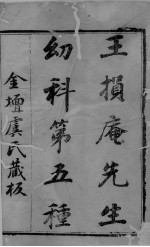 王損庵先生
幼科第五種
金壇虞氏藏板